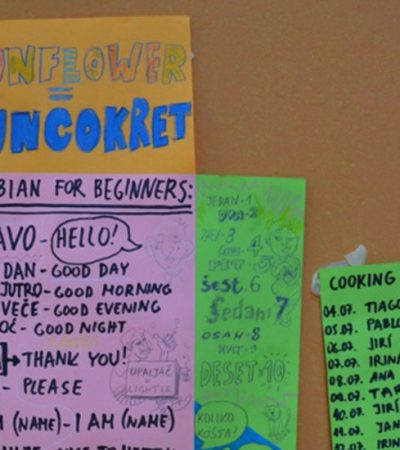 UNFLOWER
=
UNCOKRET
BIAN FOR BEGINNERS:
AVO - HELLO!
DAN - GOOD DAY
JUTRO - GOOD MORNING
VEČE - GOOD EVENING
OĆ - GOOD NIGHT
→ THANK YOU!
- PLEASE
(NAME) - I AM (NAME)
UPALJAČ =
LIGHTER
JEDAN - 1
DVA - 2
TRI - 3
4
PET - 5
ŠEST. 6
Sedam 7
OSAM - 8
9
DESET = 10
KOLIKO
KOŠTA?
COOKING
04.07. TIAGO
05.07. PABLO
06.07. JIRÍ
07.07. IRINA
08.07. ANA
09.07.
10.07. JIRÍ
11.07. JAN
12.07. IRIN